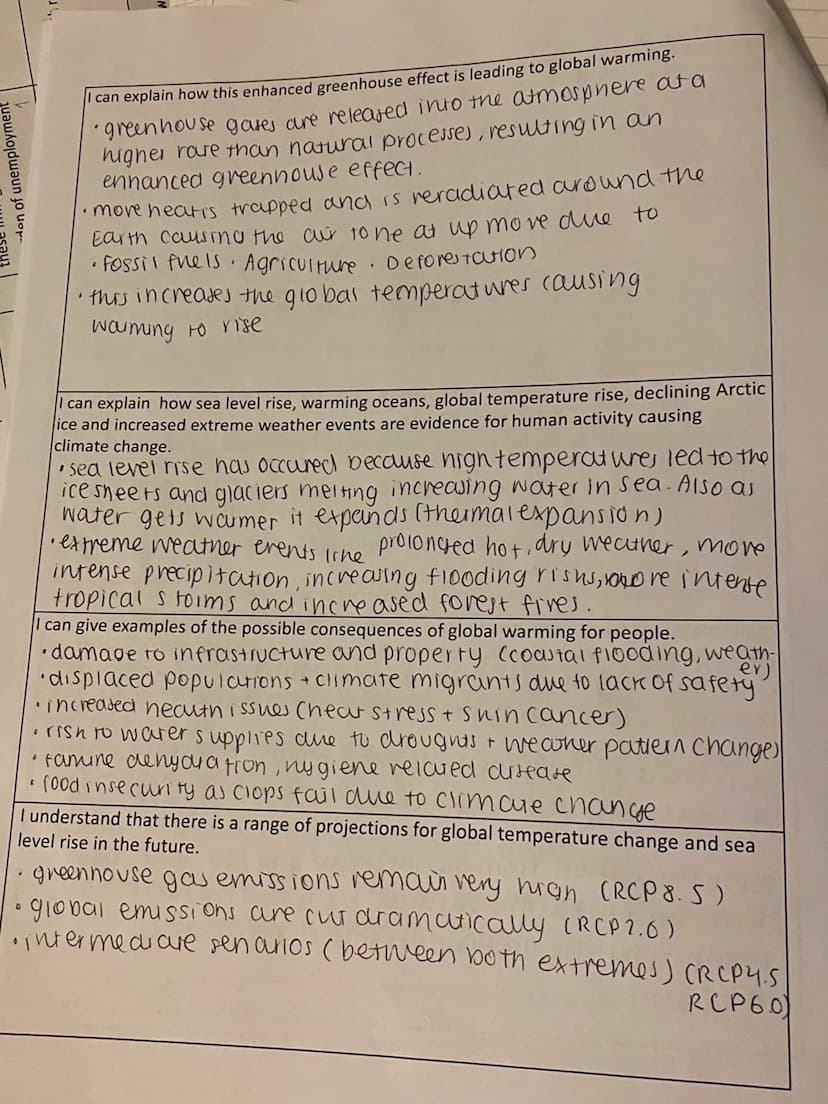 these
tion of unemployment
I can explain how this enhanced greenhouse effect is leading to global warming.
• greenhouse gases are released into the atmosphere at a
higher rate than natural processes, resulting in an
enhanced greenhouse effect.
• more heat is trapped and is reradiated around the
Earth causing the air to heat up more due to
• Fossil fuels • Agriculture • Deforestation
• this increases the global temperatures causing
warming to rise
I can explain how sea level rise, warming oceans, global temperature rise, declining Arctic
ice and increased extreme weather events are evidence for human activity causing
climate change.
• sea level rise has occured because high temperatures led to the
ice sheets and glaciers melting increasing water in sea. Also as
water gets warmer it expands (thermal expansion)
• extreme weather events like prolonged hot, dry weather, more
intense precipitation, increasing flooding risks, more intense
tropical storms and increased forest fires.
I can give examples of the possible consequences of global warming for people.
• damage to infrastructure and property (coastal flooding, weath-
er)
• displaced populations + climate migrants due to lack of safety
• increased health issues (heat stress + skin cancer)
• risk to water supplies due to droughts + weather pattern changes
• famine dehydration, hygiene related disease
• food insecurity as crops fail due to climate change
I understand that there is a range of projections for global temperature change and sea
level rise in the future.
• greenhouse gas emissions remain very high (RCP 8.5)
• global emissions are cut dramatically (RCP2.6)
• intermediate senarios (between both extremes) (RCP4.5
RCP6.0)